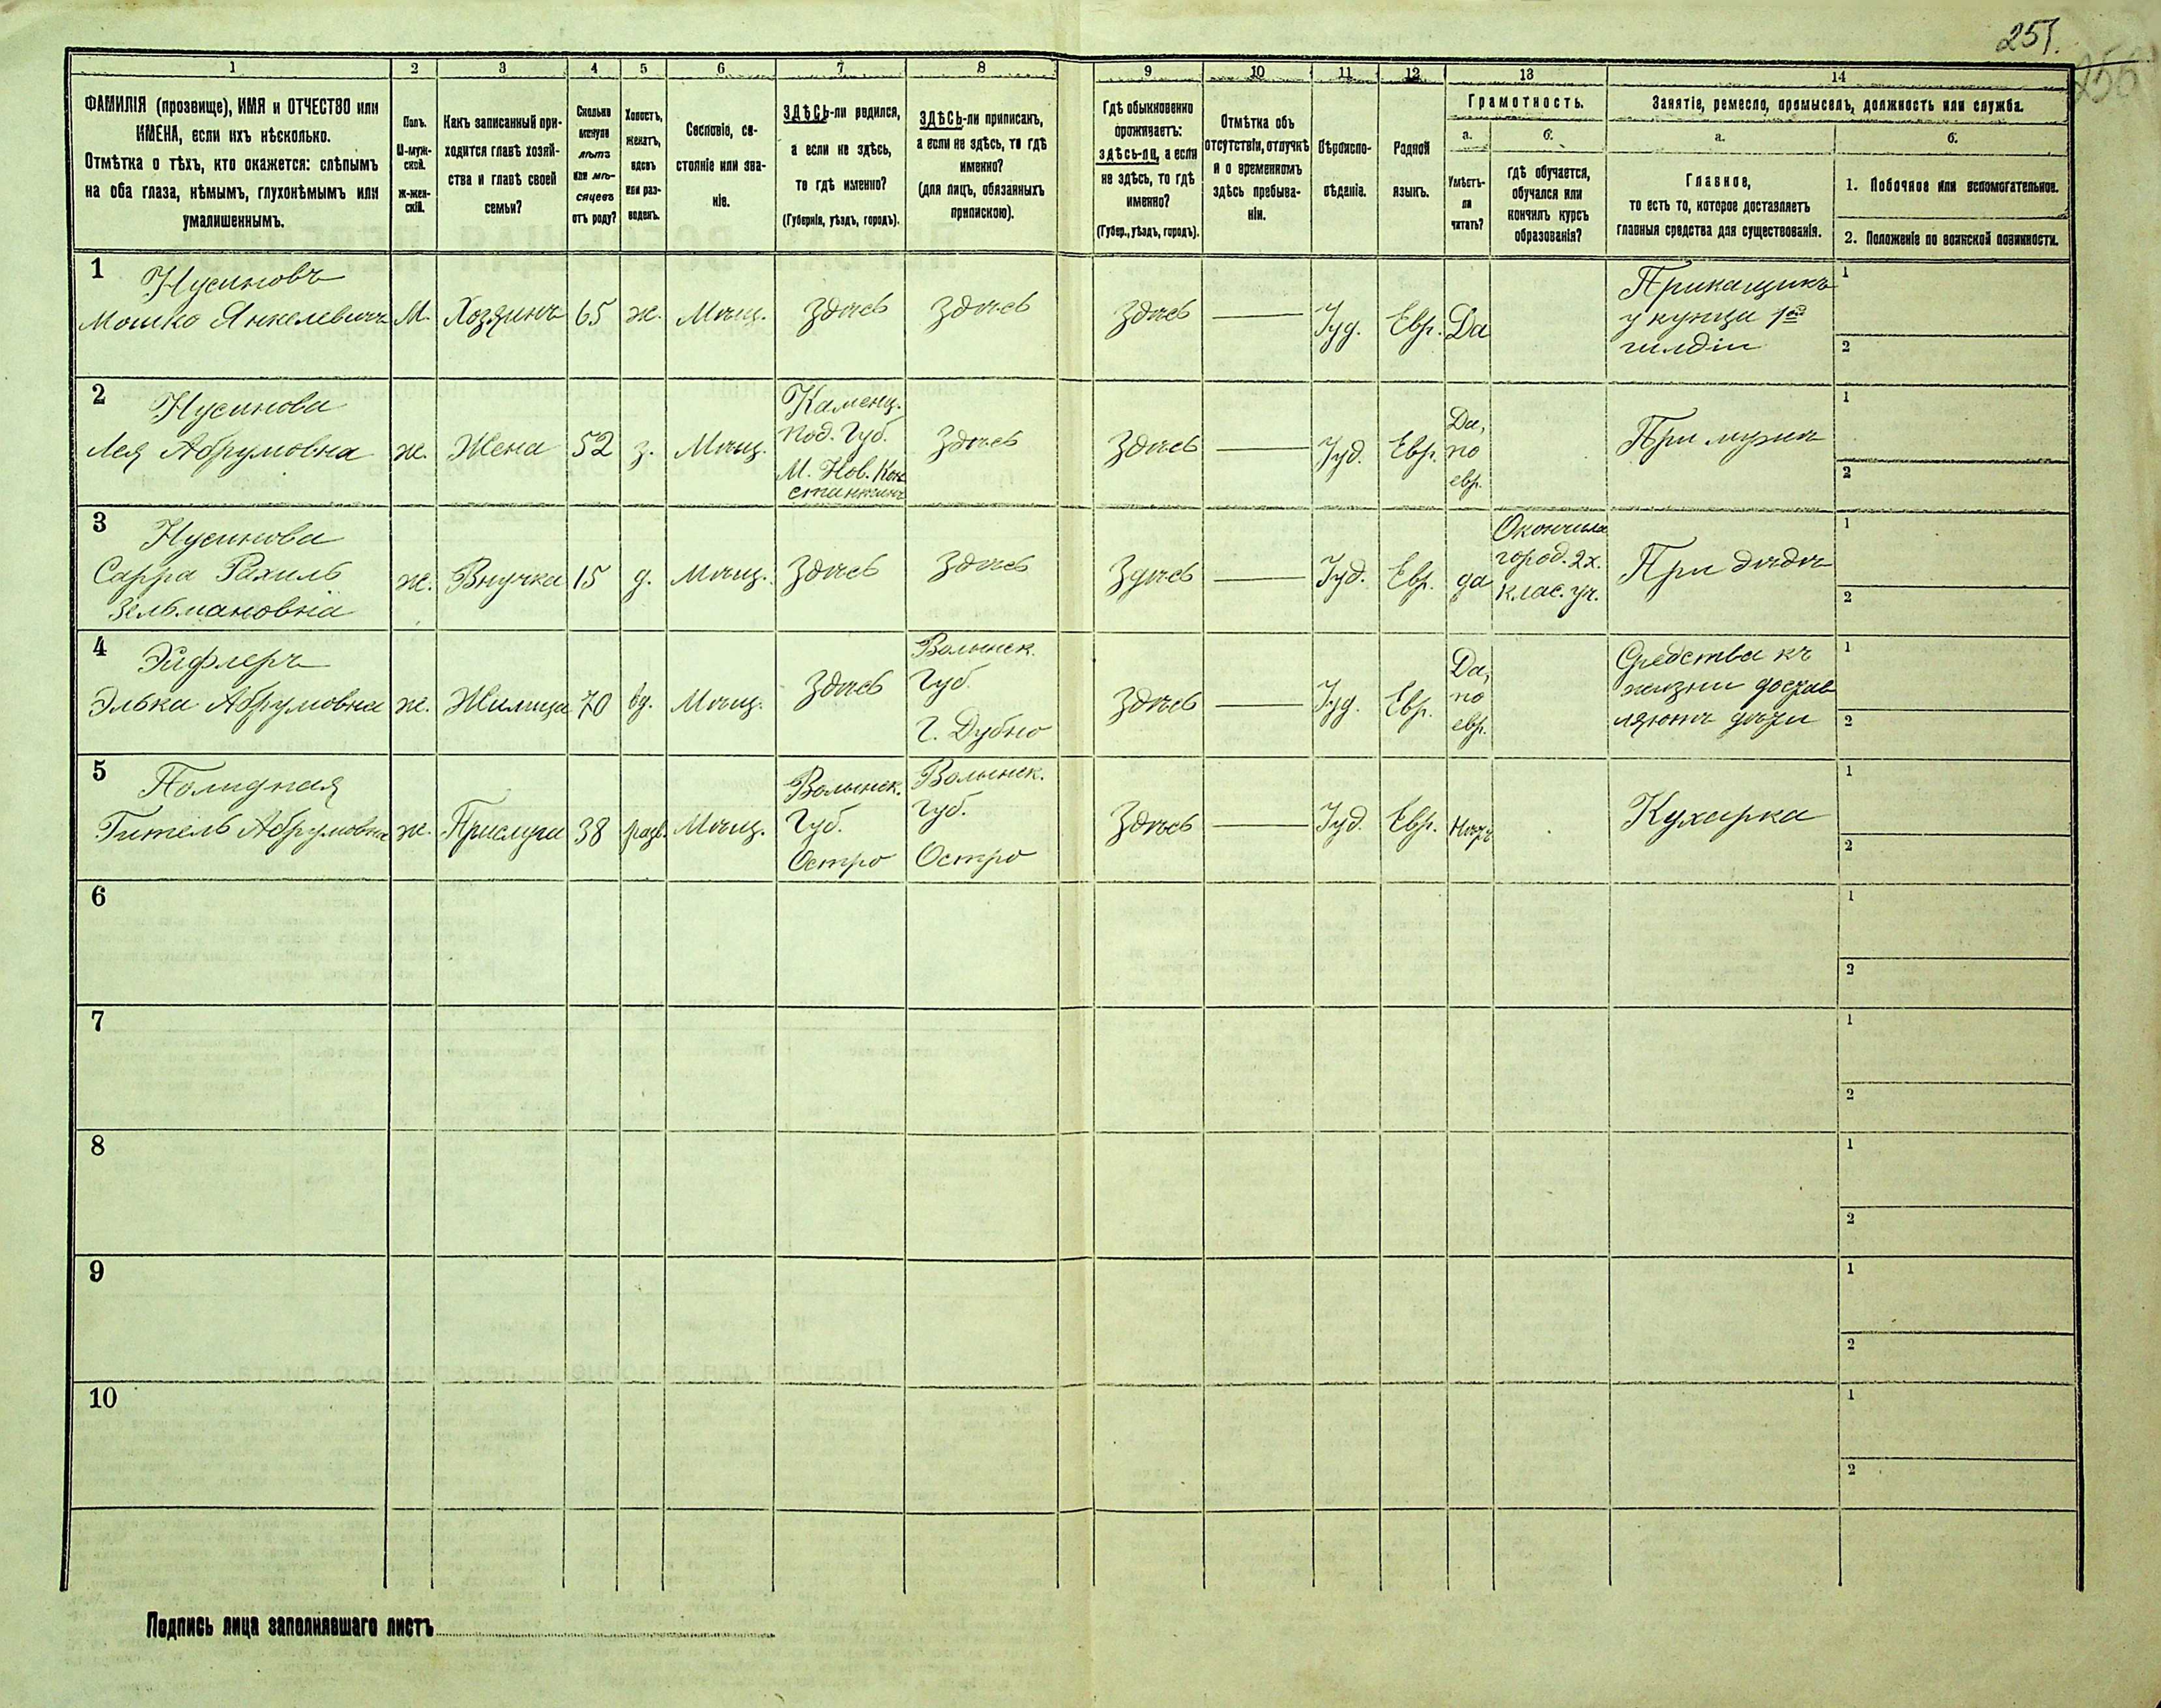 251.
256
1 2 3 4 5 6 7 8 9 10 11 12 13 14
ФАМИЛІЯ (прозвище), ИМЯ и ОТЧЕСТВО или
ИМЕНА, если ихъ нѣсколько.
Отмѣтка о тѣхъ, кто окажется: слѣпымъ
на оба глаза, нѣмымъ, глухонѣмымъ или
умалишеннымъ.
Полъ.
М-муж-
ской.
ж-жен-
скій.
Какъ записанный при-
ходится главѣ хозяй-
ства и главѣ своей
семьи?
Сколько
минуло
лѣтъ
или мѣ-
сяцевъ
отъ роду?
Холостъ,
женатъ,
вдовъ
или раз-
веденъ.
Сословіе, со-
стояніе или зва-
ніе.
ЗДѢСЬ-ли родился,
а если не здѣсь,
то гдѣ именно?
(Губернія, уѣздъ, городъ).
ЗДѢСЬ-ли приписанъ,
а если не здѣсь, то гдѣ
именно?
(для лицъ, обязанныхъ
припискою).
Гдѣ обыкновенно
проживаетъ:
здѣсь-ли, а если
не здѣсь, то гдѣ
именно?
(Губер., уѣздъ, городъ).
Отмѣтка объ
отсутствіи, отлучкѣ
и о временномъ
здѣсь пребыва-
ніи.
Вѣроиспо-
вѣданіе.
Родной
языкъ.
Грамотность.
а.
Умѣетъ-
ли
читать?
б.
гдѣ обучается,
обучался или
кончилъ курсъ
образованія?
Занятіе, ремесло, промыселъ, должность или служба.
а.
Главное,
то есть то, которое доставляетъ
главныя средства для существованія.
б.
1. Побочное или вспомогательное.
2. Положеніе по воинской повинности.
1
Нусиновъ
Мошко Янкелевичъ
М.
Хозяинъ
65
ж.
Мѣщ.
Здѣсь
Здѣсь
Здѣсь
Іуд.
Евр.
Да
Прикащикъ
у купца 1ой
гильдіи
1
2
2
Нусинова
Лея Абрумовна
ж.
Жена
52
з.
Мѣщ.
Каменц.
Под. Губ.
М. Нов. Кон
стантинъ
Здѣсь
Здѣсь
Іуд.
Евр.
Да,
по
евр.
При мужѣ
1
2
3
Нусинова
Сарра Рахиль
Зельмановна
ж.
Внучка
15
д.
Мѣщ.
Здѣсь
Здѣсь
Здѣсь
Іуд.
Евр.
да
Окончила
город. 2х.
клас. уч.
При дѣдѣ
1
2
4
Эйфлеръ
Элька Абрумовна
ж.
Жилица
70
вд.
Мѣщ.
Здѣсь
Волынск.
Губ.
Г. Дубно
Здѣсь
Іуд.
Евр.
Да,
по
евр.
Средства къ
жизни достав
ляютъ дѣти
1
2
5
Гитель Абрумовна
ж.
Прислуга
38
разв.
Мѣщ.
Волынск.
Губ.
Остро
Волынск.
Губ.
Остро
Здѣсь
Іуд.
Евр.
Нѣтъ
Кухарка
1
2
6
1
2
7
1
2
8
1
2
9
1
2
10
1
2
Подпись лица заполнявшаго листъ